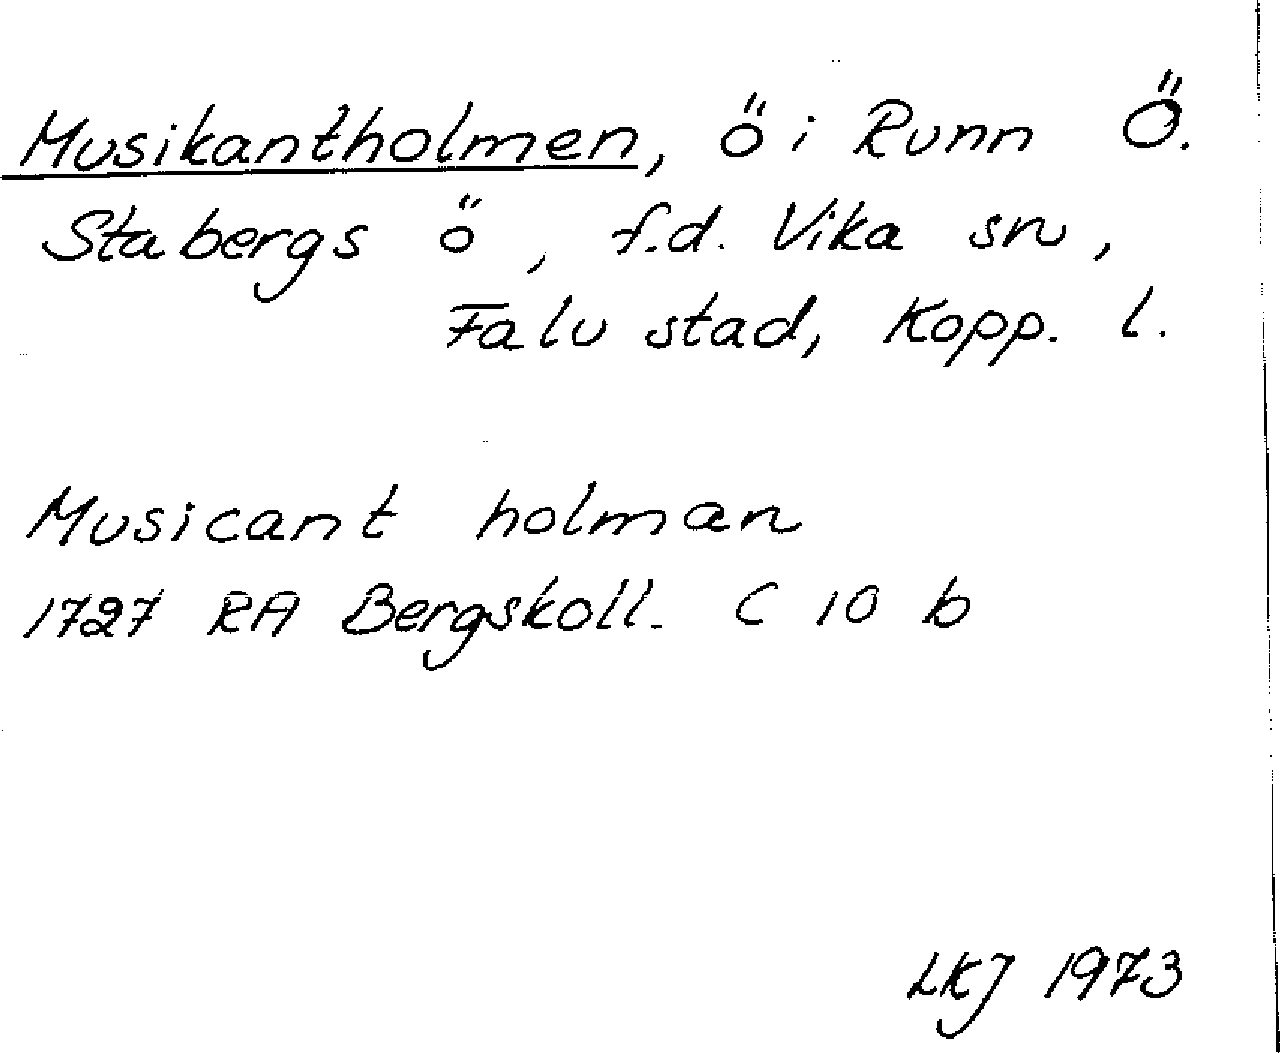 Musikantholmen, ö i Runn Ö.
Stabergs ö, f.d. Vika sn,
Falu stad, Kopp. l.
Musicant holman
1727 RA Bergskoll. C 10 b
LKJ 1973